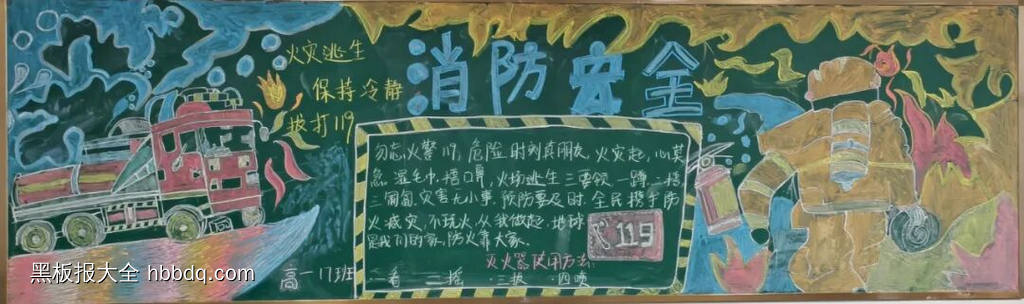 火灾逃生
保持冷静
拨打119
消防安全
勿忘火警119,危险时刻真朋友,火灾起,心莫
急,湿毛巾,捂口鼻,火场逃生三要领,一蹲二捂
三匍匐,灾害无小事,预防要及时,全民携手防
火减灾,不玩火从我做起,地球
是我们的家,防火靠大家.
119
灭火器使用方法:
一看 二摇 三拔 四喷
高一17班
黑板报大全 hbbdq.com